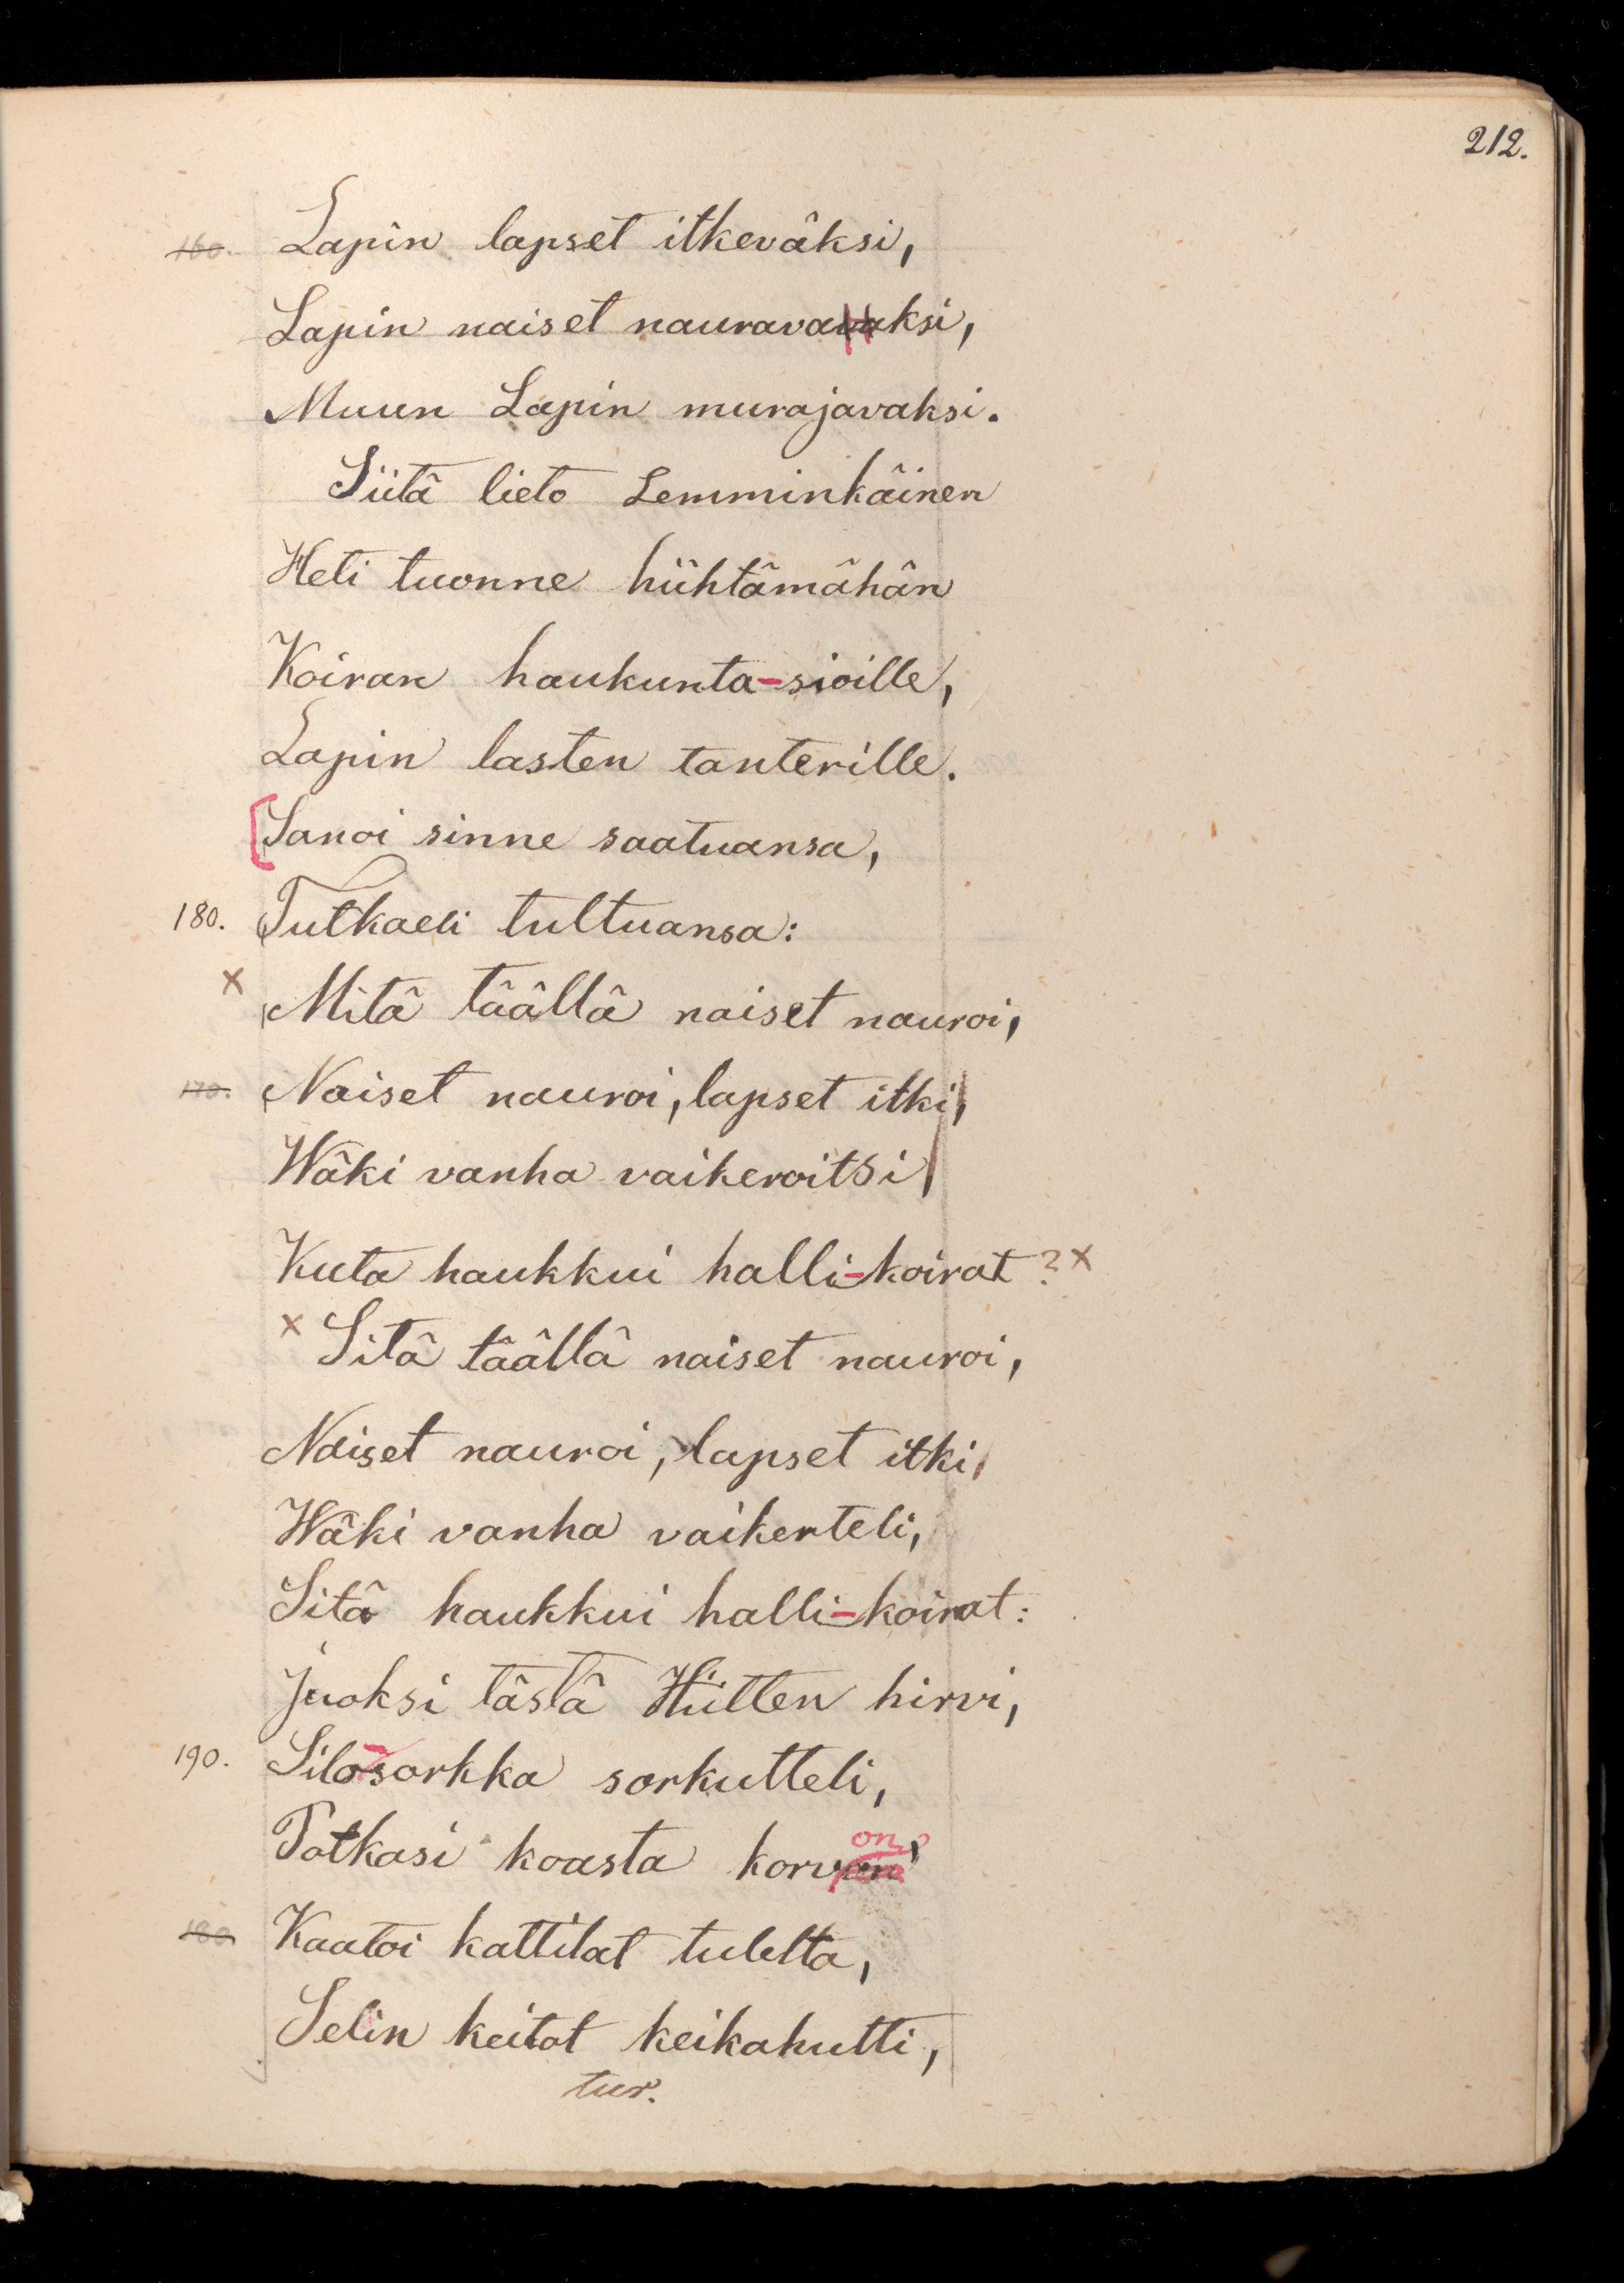 212.
160. Lapin lapset itkeväksi,
Lapin naiset nauravavaksi,
Muun Lapin murajavaksi.
Siitä lieto Lemminkäinen
Heti tuonne hiihtämähän
Koiran haukunta-sioille,
Lapin lasten tanterille.
[Sanoi sinne saatuansa,
180. Tutkaeli tultuansa:
x Mitä täällä naiset nauroi,
170. Naiset nauroi, lapset itki,
Wäki vanha vaikeroitsi
Kuta haukkui halli-koirat? x
x Sitä täällä naiset nauroi,
Naiset nauroi, lapset itki,
Wäki vanha vaikerteli,
Sitä haukkui halli-koirat:
Juoksi tästä Hiitten hirvi,
190. Silo-sorkka sorkutteli,
on,
Potkasi koasta korvan
180. Kaatoi kattilat tulelta,
Selin keitot keikahutti,
tur.